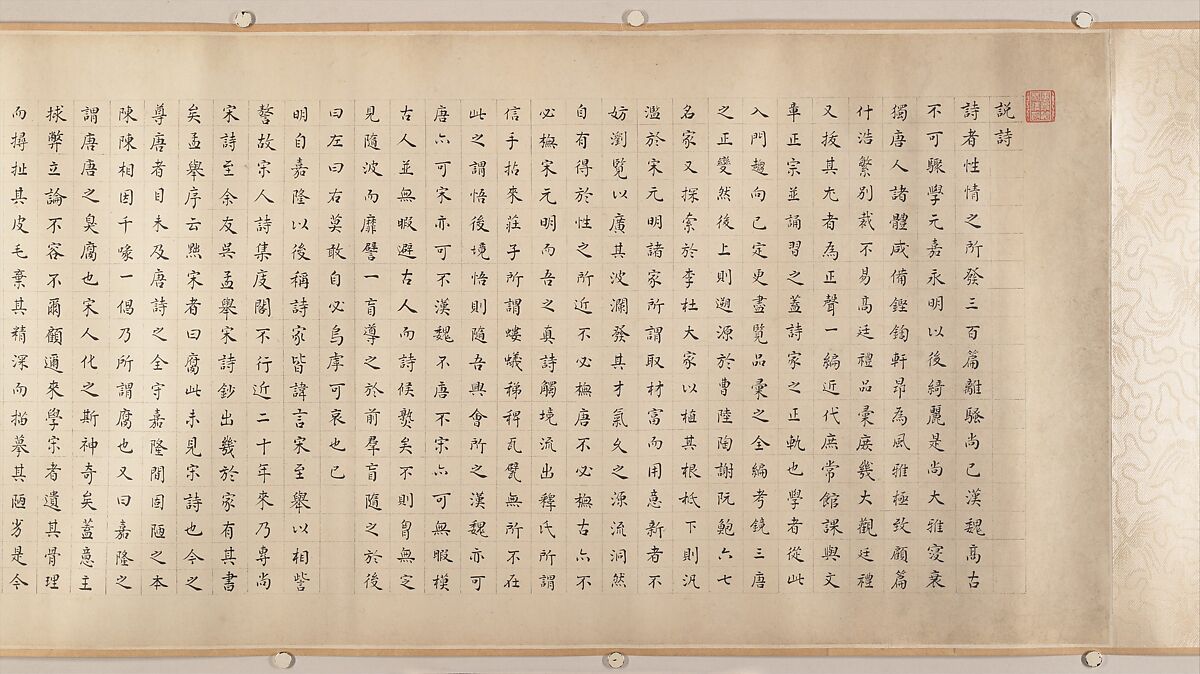 説詩
詩者性情之所發三百篇離騷尚已漢魏髙古
不可驟學元嘉永明以後綺麗是尚大雅寖衰
獨唐人諸體咸備鏗鍧軒昂為風雅極致顧篇
什浩繁別裁不易髙廷禮品彚庻幾大觀廷禮
又拔其尤者為正聲一編近代庶常館課與文
章正宗並誦習之蓋詩家之正軌也學者從此
入門趨向已定更盡覽品彚之全編考鏡三唐
之正變然後上則遡源於曹陸陶謝阮鮑六七
名家又探索於李杜大家以植其根柢下則汎
濫於宋元明諸家所謂取材富而用意新者不
妨瀏覽以廣其波瀾發其才氣久之源流洞然
自有得於性之所近不必橅唐不必橅古亦不
必橅宋元明而吾之真詩觸境流出釋氏所謂
信手拈來莊子所謂螻蟻稊稗瓦甓無所不在
此之謂悟後境悟則隨吾興會所之漢魏亦可
唐亦可宋亦可不漢魏不唐不宋亦可無暇模
古人並無暇避古人而詩候熟矣不則胷無定
見隨波而靡譬一盲導之於前羣盲隨之於後
曰左曰右莫敢自必烏虖可哀也已
明自嘉隆以後稱詩家皆諱言宋至舉以相訾
謷故宋人詩集庋閣不行近二十年來乃專尚
宋詩至余友吳孟舉宋詩鈔出幾於家有其書
矣孟舉序云黜宋者曰腐此未見宋詩也今之
尊唐者目未及唐詩之全守嘉隆間固陋之本
陳陳相因千喙一倡乃所謂腐也又曰嘉隆之
謂唐唐之臭腐也宋人化之斯神奇矣蓋意主
捄弊立論不容不爾顧邇來學宋者遺其骨理
而撏扯其皮毛棄其精深而描摹其陋劣是今